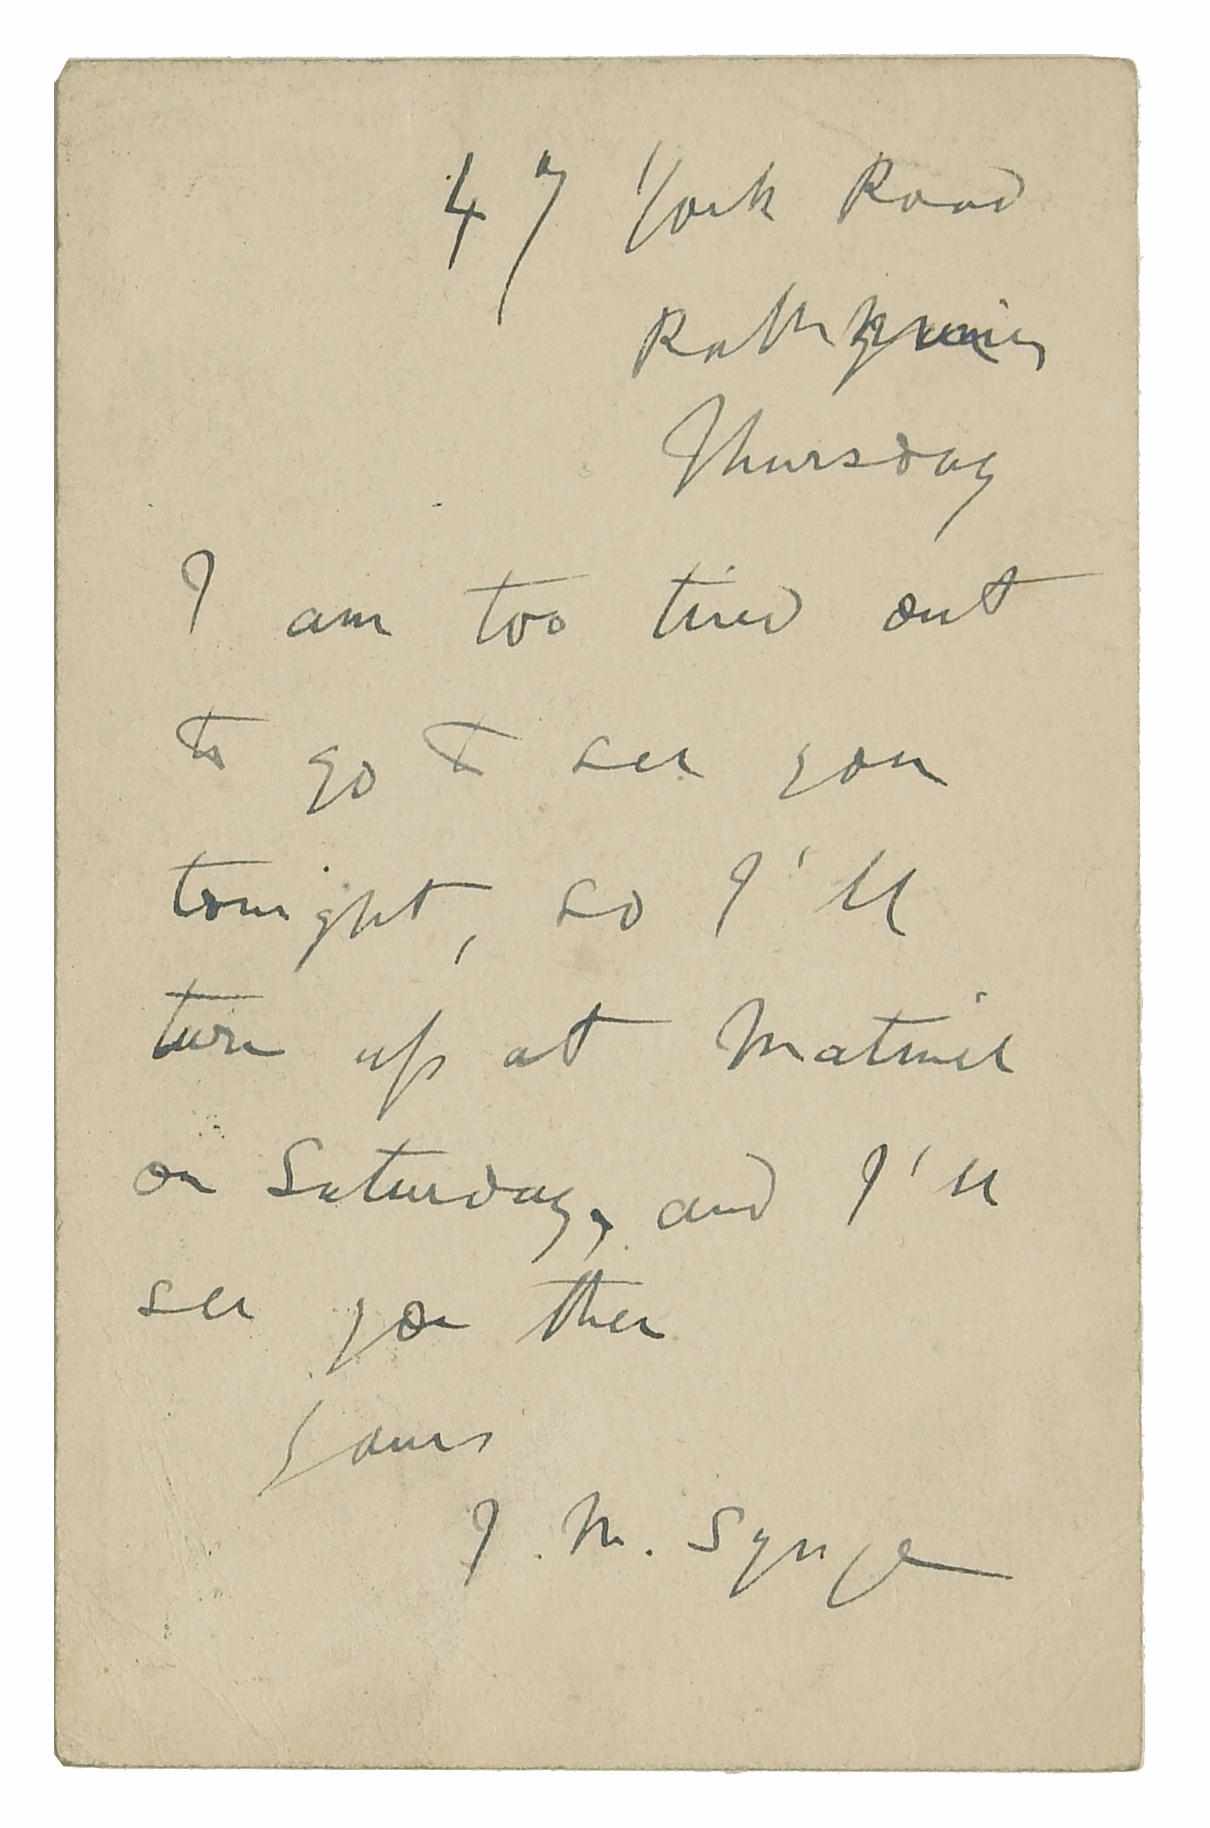 47 York Road
Rathmines
Thursday
I am too tired out
to go to see you
tonight, so I'll
turn up at Matinee
on Saturday, and I'll
see you then
Yours
J. M. Synge